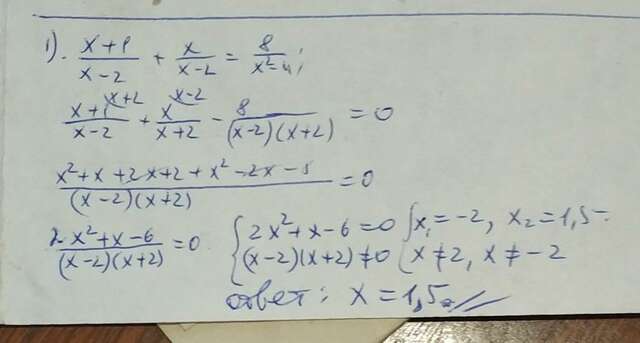 1). (x+1)/(x-2) + x/(x-2) = 8/(x²-4);
(x+1)/(x-2) ^(x+2) + x/(x+2) ^(x-2) - 8/((x-2)(x+2)) = 0
(x²+x+2x+2+x²-2x-8)/((x-2)(x+2)) = 0
(2x²+x-6)/((x-2)(x+2)) = 0 { 2x²+x-6=0 { x₁=-2, x₂=1,5
(x-2)(x+2)≠0 x≠2, x≠-2
ответ: x=1,5